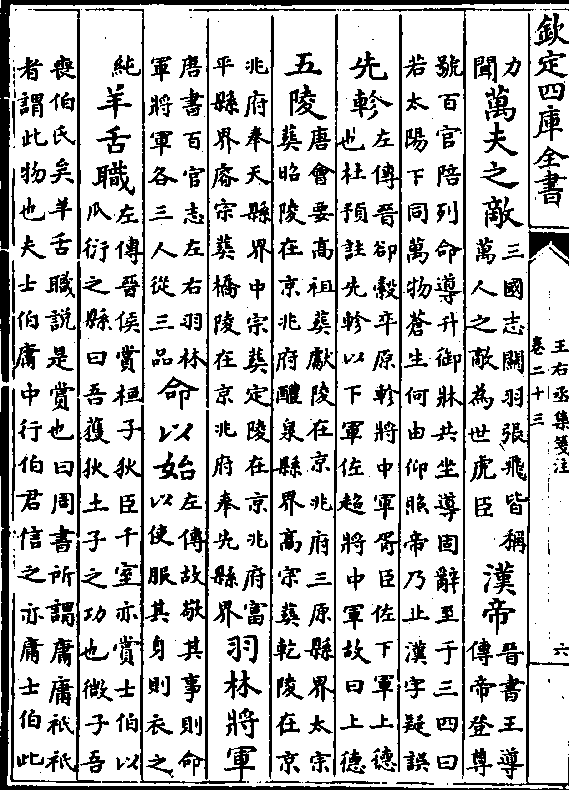 欽定四庫全書
王右丞集箋注
卷二十三
六
力
聞
萬夫之敵
三國志關羽張飛皆稱
萬人之敵為世虎臣
漢帝
晉書王導
傳帝登尊
號百官陪列命導升御牀共坐導固辭至于三四曰
若太陽下同萬物蒼生何由仰照帝乃止漢字疑誤
先軫
左傳晉郤縠卒原軫將中軍胥臣佐下軍上德
也杜預註先軫以下軍佐超將中軍故曰上德
五陵
唐會要高祖葬獻陵在京兆府三原縣界太宗
葬昭陵在京兆府醴泉縣界高宗葬乾陵在京
兆府奉天縣界中宗葬定陵在京兆府富
平縣界睿宗葬橋陵在京兆府奉先縣界
羽林將軍
唐書百官志左右羽林
軍將軍各三人從三品
命以始
左傳故敬其事則命
以使服其身則衣之
純
羊舌職
左傳晉侯賞桓子狄臣千室亦賞士伯以
瓜衍之縣曰吾獲狄土子之功也微子吾
喪伯氏矣羊舌職說是賞也曰周書所謂庸庸祗祗
者謂此物也夫士伯庸中行伯君信之亦庸士伯此